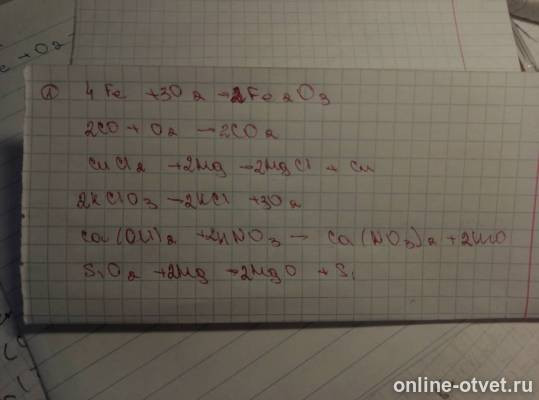 е + O2
1) 4Fe + 3O2 → 2Fe2O3
2CO + O2 → 2CO2
CuCl2 + 2Mg → 2MgCl + Cu
2KClO3 → 2KCl + 3O2
Ca(OH)2 + 2HNO3 → Ca(NO3)2 + 2H2O
SiO2 + 2Mg → 2MgO + Si
online-otvet.ru